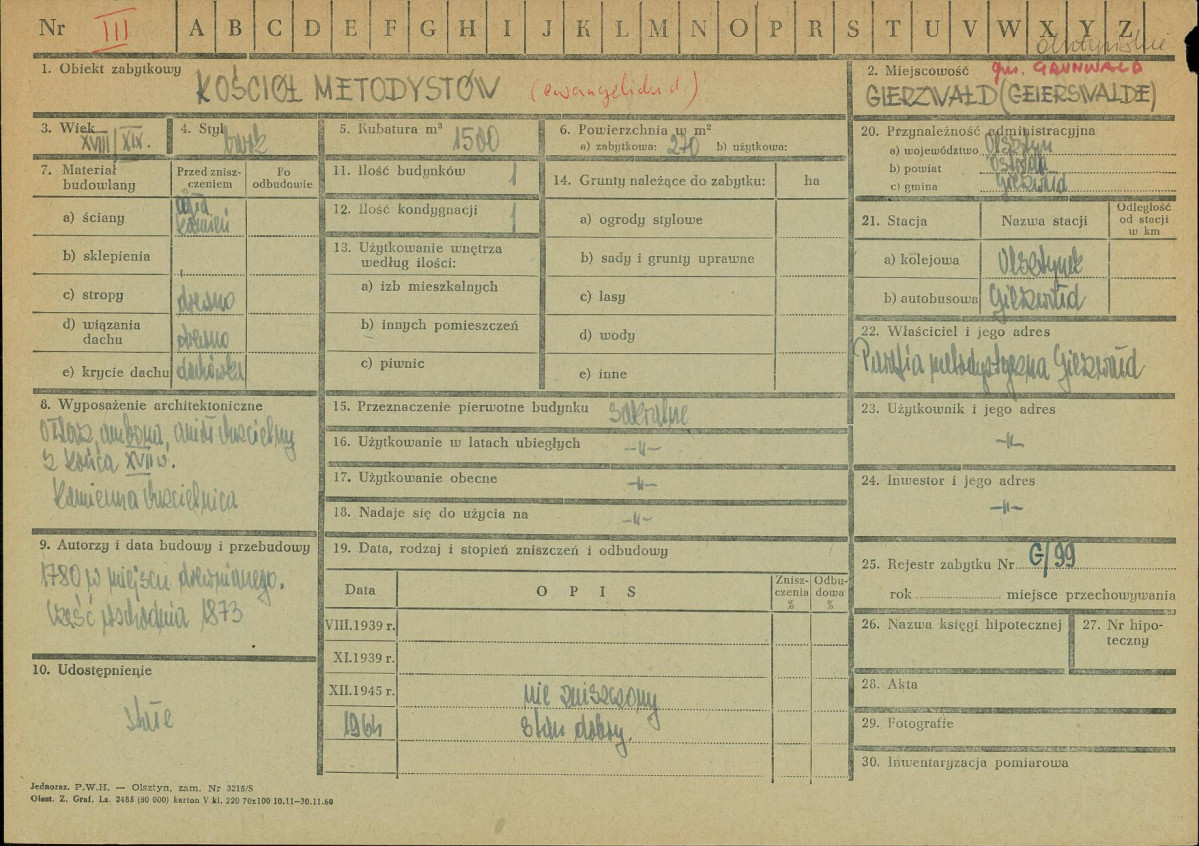 Nr III A B C D E F G H I J K L M N O P R S T U V W X Y Z
1. Obiekt zabytkowy
KOŚCIÓŁ METODYSTÓW (ewangelicki d.)
2. Miejscowość gm. GRUNWALD
GIERZWAŁD (GEIERSWALDE)
3. Wiek
XVIII/XIX.
4. Styl
barok
5. Kubatura m³
1500
6. Powierzchnia w m²
a) zabytkowa: 270 b) użytkowa:
7. Materiał budowlany
Przed znisz-
czeniem
Po
odbudowie
a) ściany
cegła
kamień
b) sklepienia
c) stropy drewno
d) wiązania
dachu drewno
e) krycie dachu dachówka
8. Wyposażenie architektoniczne
Ołtarz, ambona, anioł chrzcielny
z końca XVII w.
Kamienna chrzcielnica
9. Autorzy i data budowy i przebudowy
1780 w miejscu drewnianego.
Część wschodnia 1873
10. Udostępnienie
stałe
11. Ilość budynków 1
12. Ilość kondygnacji 1
13. Użytkowanie wnętrza
według ilości:
a) izb mieszkalnych
b) innych pomieszczeń
c) piwnic
14. Grunty należące do zabytku: ha
a) ogrody stylowe
b) sady i grunty uprawne
c) lasy
d) wody
e) inne
15. Przeznaczenie pierwotne budynku sakralne
16. Użytkowanie w latach ubiegłych -"-
17. Użytkowanie obecne -"-
18. Nadaje się do użycia na -"-
19. Data, rodzaj i stopień zniszczeń i odbudowy
Data
O P I S
Znisz-
czenia
%
Odbu-
dowa
%
VIII.1939 r.
XI.1939 r.
XII.1945 r. nie zniszczony
1964 Stan dobry.
20. Przynależność administracyjna
a) województwo Olsztyn
b) powiat Ostróda
c) gmina Gierzwałd
21. Stacja
Nazwa stacji
Odległość
od stacji
w km
a) kolejowa Olsztynek
b) autobusowa Gierzwałd
22. Właściciel i jego adres
Parafia metodystyczna Gierzwałd
23. Użytkownik i jego adres
-"-
24. Inwestor i jego adres
-"-
25. Rejestr zabytku Nr G/99
rok miejsce przechowywania
26. Nazwa księgi hipotecznej
27. Nr hipo-
teczny
28. Akta
29. Fotografie
30. Inwentaryzacja pomiarowa
Jednoraz. P.W.H. — Olsztyn, zam. Nr 3215/S
Olszt. Z. Graf. Lz. 2485 (90 000) karton V kl. 220 70x100 10.11—30.11.60